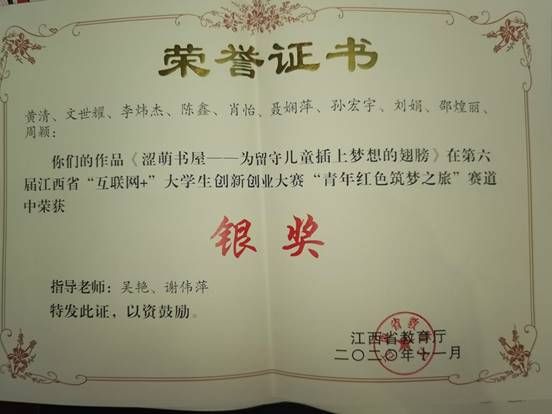 荣誉证书
黄清、文世耀、李炜杰、陈鑫、肖怡、聂娴萍、孙宏宇、刘娟、邵煌丽、
周颖：
你们的作品《涩萌书屋——为留守儿童插上梦想的翅膀》在第六
届江西省“互联网+”大学生创新创业大赛“青年红色筑梦之旅”赛道
中荣获
银奖
指导老师：吴艳、谢伟萍
特发此证，以资鼓励。
江西省教育厅
二〇二〇年十一月